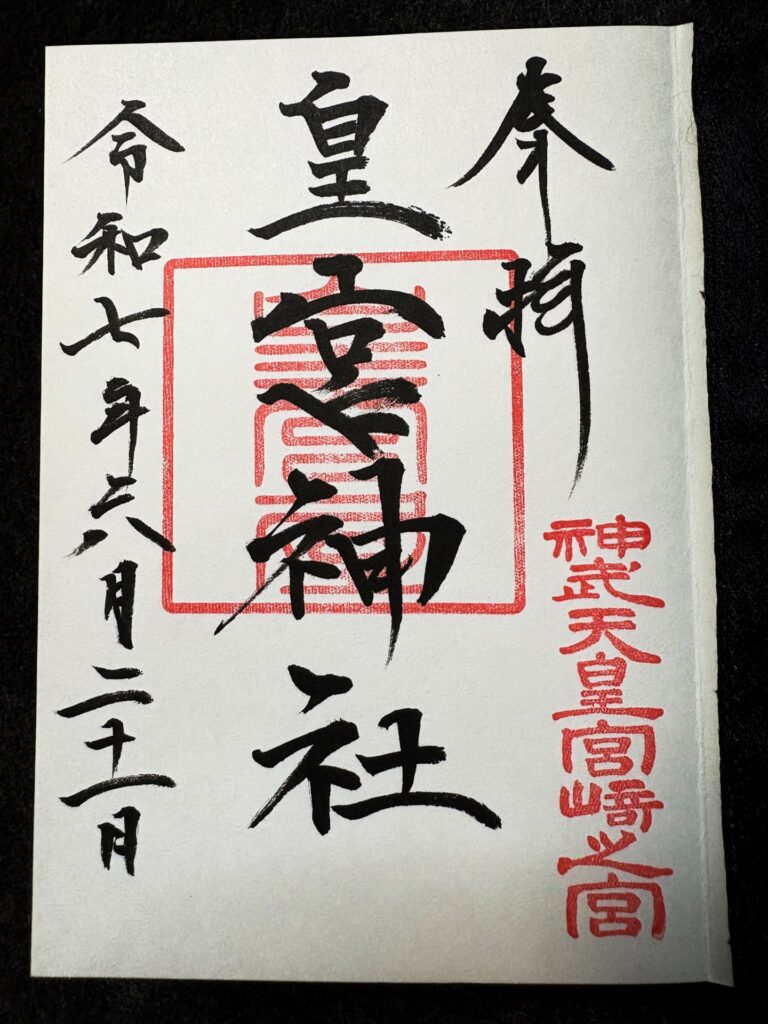 奉拝
神武天皇宮﨑之宮
皇宮神社
令和七年六月二十一日